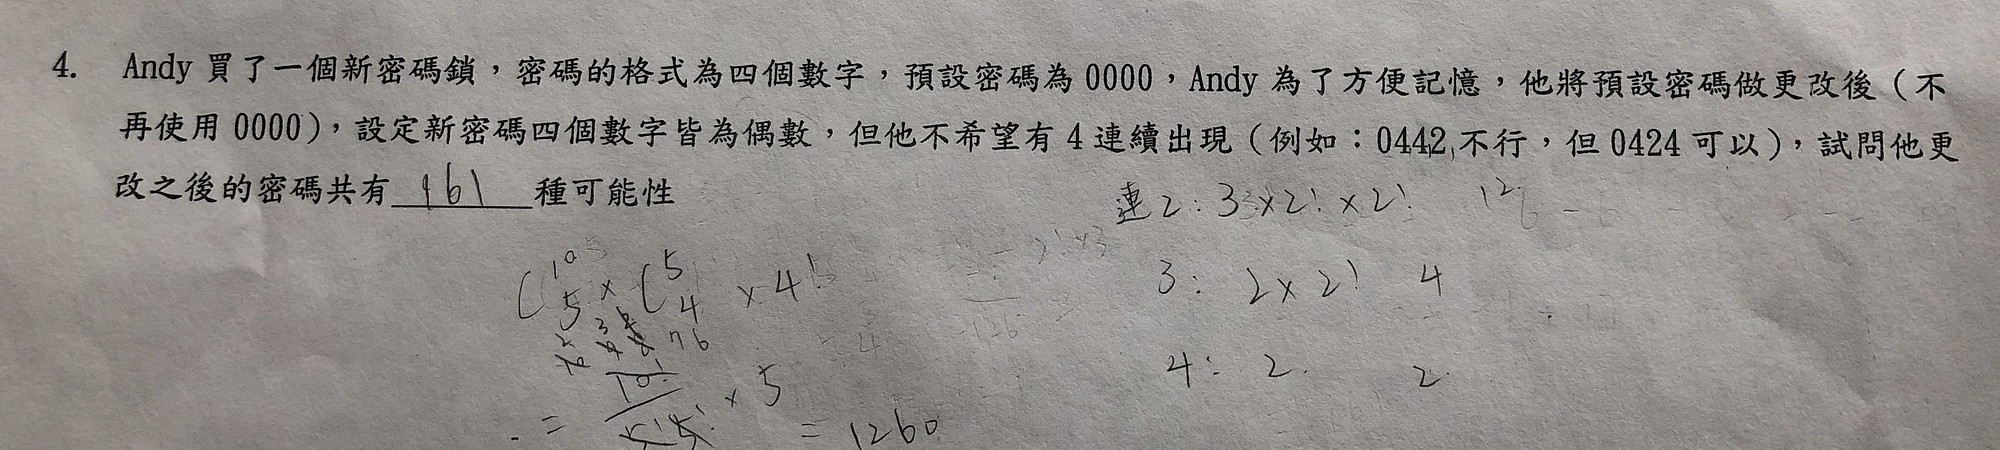 4. Andy 買了一個新密碼鎖，密碼的格式為四個數字，預設密碼為 0000，Andy 為了方便記憶，他將預設密碼做更改後（不
再使用 0000），設定新密碼四個數字皆為偶數，但他不希望有 4 連續出現（例如：0442 不行，但 0424 可以），試問他更
改之後的密碼共有 161 種可能性
連2: 3×2!×2! 12
3: 2×2! 4
4: 2. 2.
× 5
= 1260